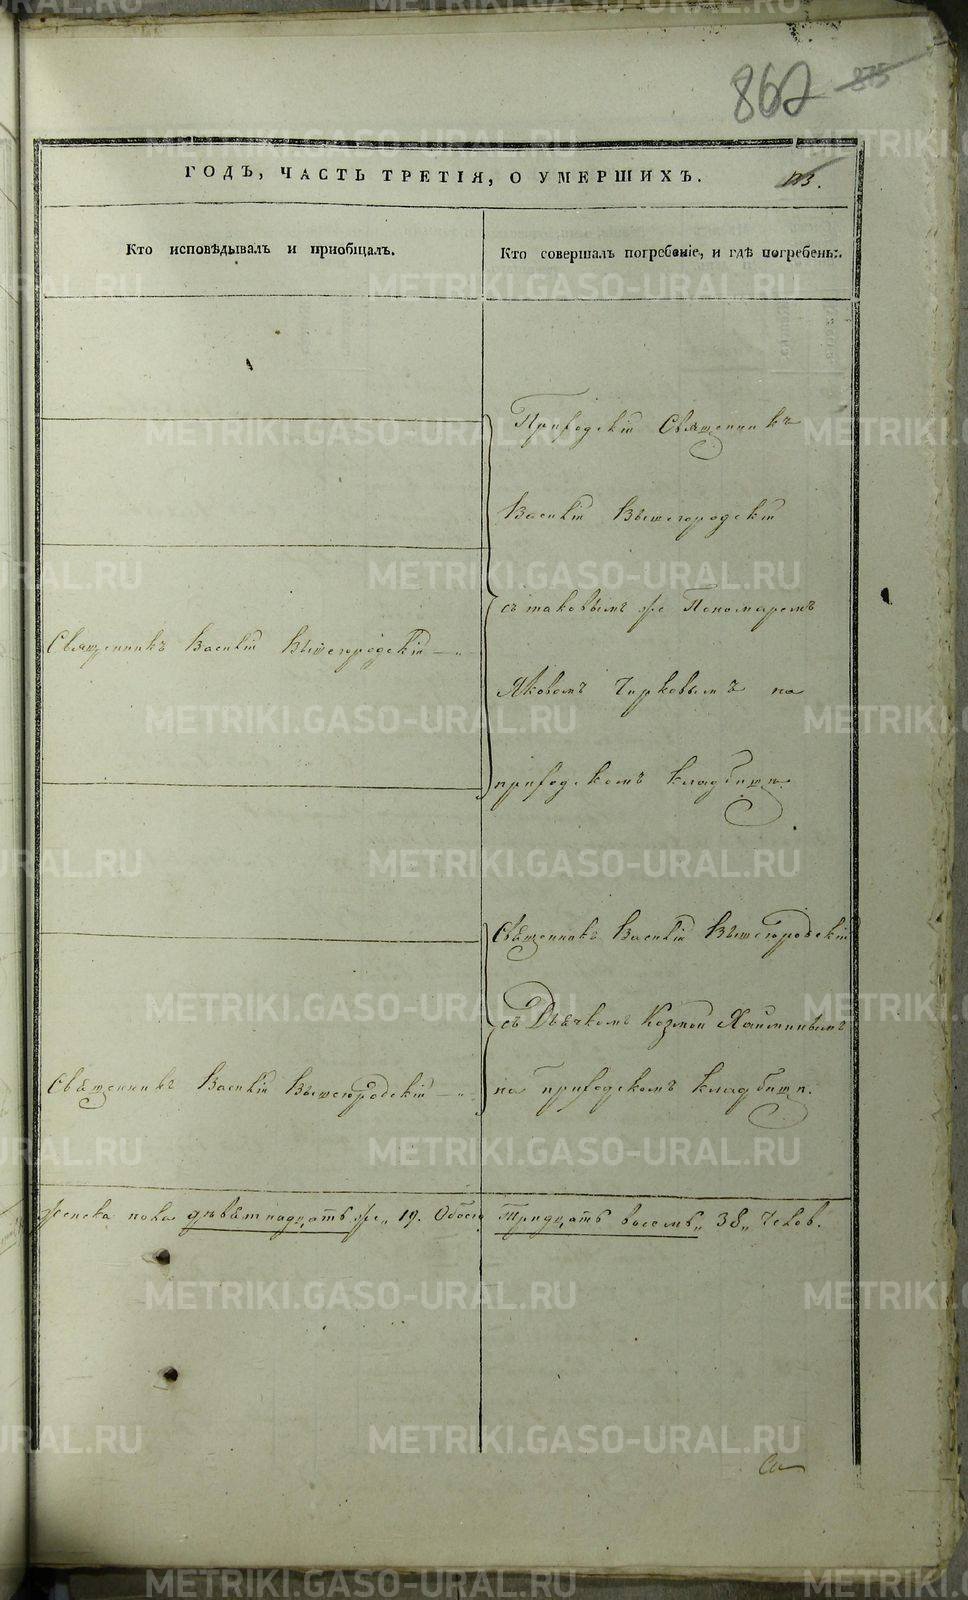 862 875
ГОДЪ, ЧАСТЬ ТРЕТІЯ, О УМЕРШИХЪ.
Кто исповѣдывалъ и пріобщалъ.
Кто совершалъ погребеніе, и гдѣ погребены:
Приходскій Священникъ
Василій Вышегородскій
съ таковымъ же Пономаремъ
Яковомъ Чирковымъ на
приходскомъ кладбищѣ
Священникъ Василій Вышегородскій
Священникъ Василій Вышегородскій
съ Дьячкомъ Козмой
на приходскомъ кладбищѣ.
Священникъ Василій Вышегородскій
женска пола девѣтнадцать же „ 19. Обоего
Тридцать восемь „ 38 „ Челов.
METRIKI.GASO-URAL.RU